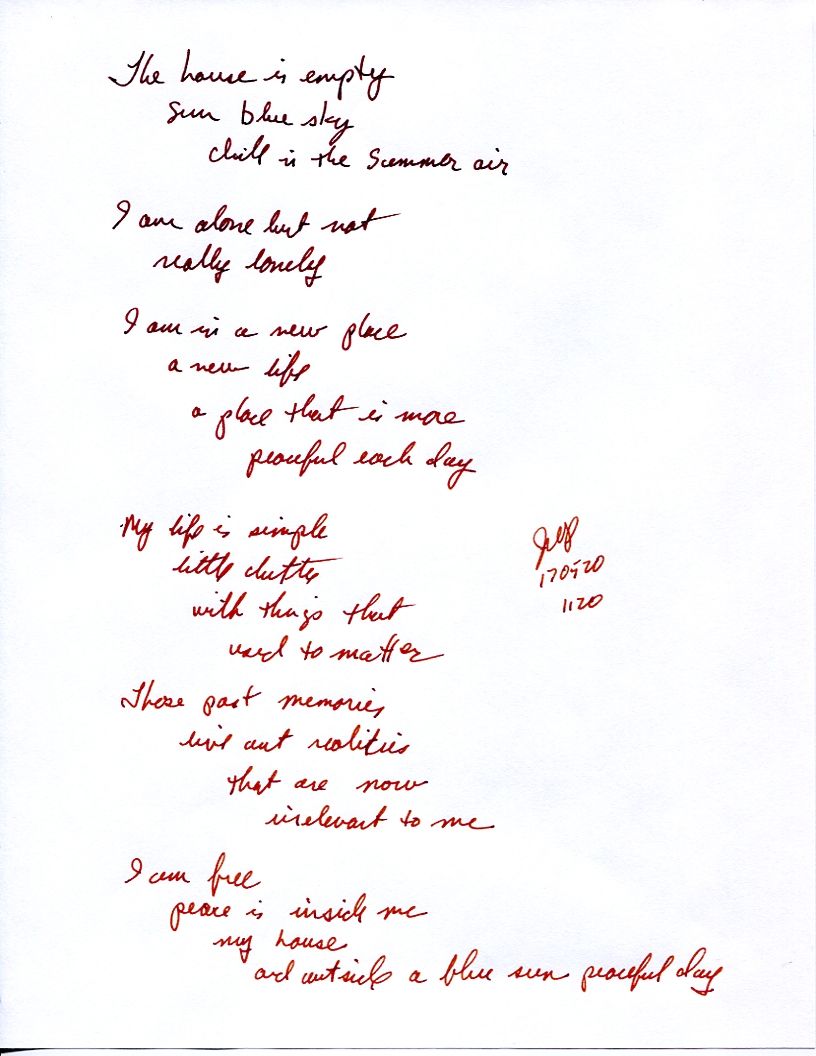 The house is empty
sun blue sky
chill is the summer air
I am alone but not
really lonely
I am in a new place
a new life
a place that is more
peaceful each day
My life is simple
little clutter
with things that
used to matter
170520
1120
Those past memories
live out realities
that are now
irrelevant to me
I am free
peace is inside me
my house
and outside a blue sun peaceful day